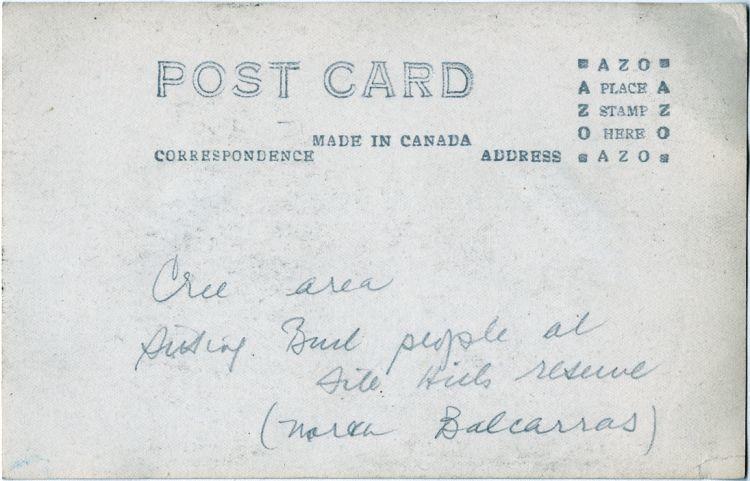 POST CARD
MADE IN CANADA
CORRESPONDENCE
ADDRESS
AZO
A PLACE A
Z STAMP Z
O HERE O
AZO
Cree area
Sitting Bull people at
File Hills reserve
(North Balcarras)